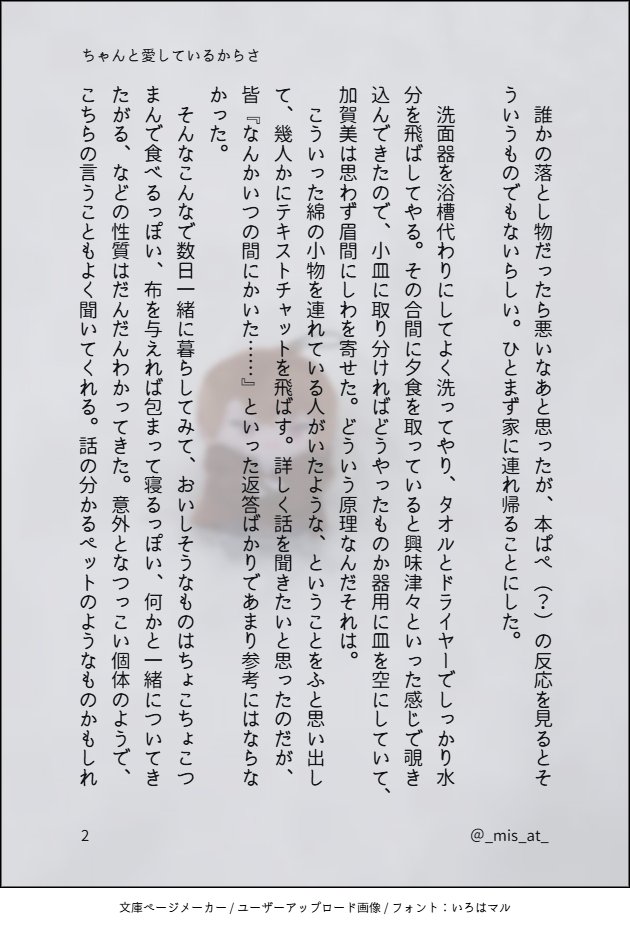 ちゃんと愛しているからさ
誰かの落とし物だったら悪いなあと思ったが、本ぱぺ（？）の反応を見るとそ
ういうものでもないらしい。ひとまず家に連れ帰ることにした。
洗面器を浴槽代わりにしてよく洗ってやり、タオルとドライヤーでしっかり水
分を飛ばしてやる。その合間に夕食を取っていると興味津々といった感じで覗き
込んできたので、小皿に取り分ければどうやったものか器用に皿を空にしていて、
加賀美は思わず眉間にしわを寄せた。どういう原理なんだそれは。
こういった綿の小物を連れている人がいたような、ということをふと思い出し
て、幾人かにテキストチャットを飛ばす。詳しく話を聞きたいと思ったのだが、
皆『なんかいつの間にかいた……』といった返答ばかりであまり参考にはならな
かった。
そんなこんなで数日一緒に暮らしてみて、おいしそうなものはちょこちょこつ
まんで食べるっぽい、布を与えれば包まって寝るっぽい、何かと一緒についてき
たがる、などの性質はだんだんわかってきた。意外となつっこい個体のようで、
こちらの言うこともよく聞いてくれる。話の分かるペットのようなものかもしれ
2
@_mis_at_
文庫ページメーカー / ユーザーアップロード画像 / フォント：いろはマル